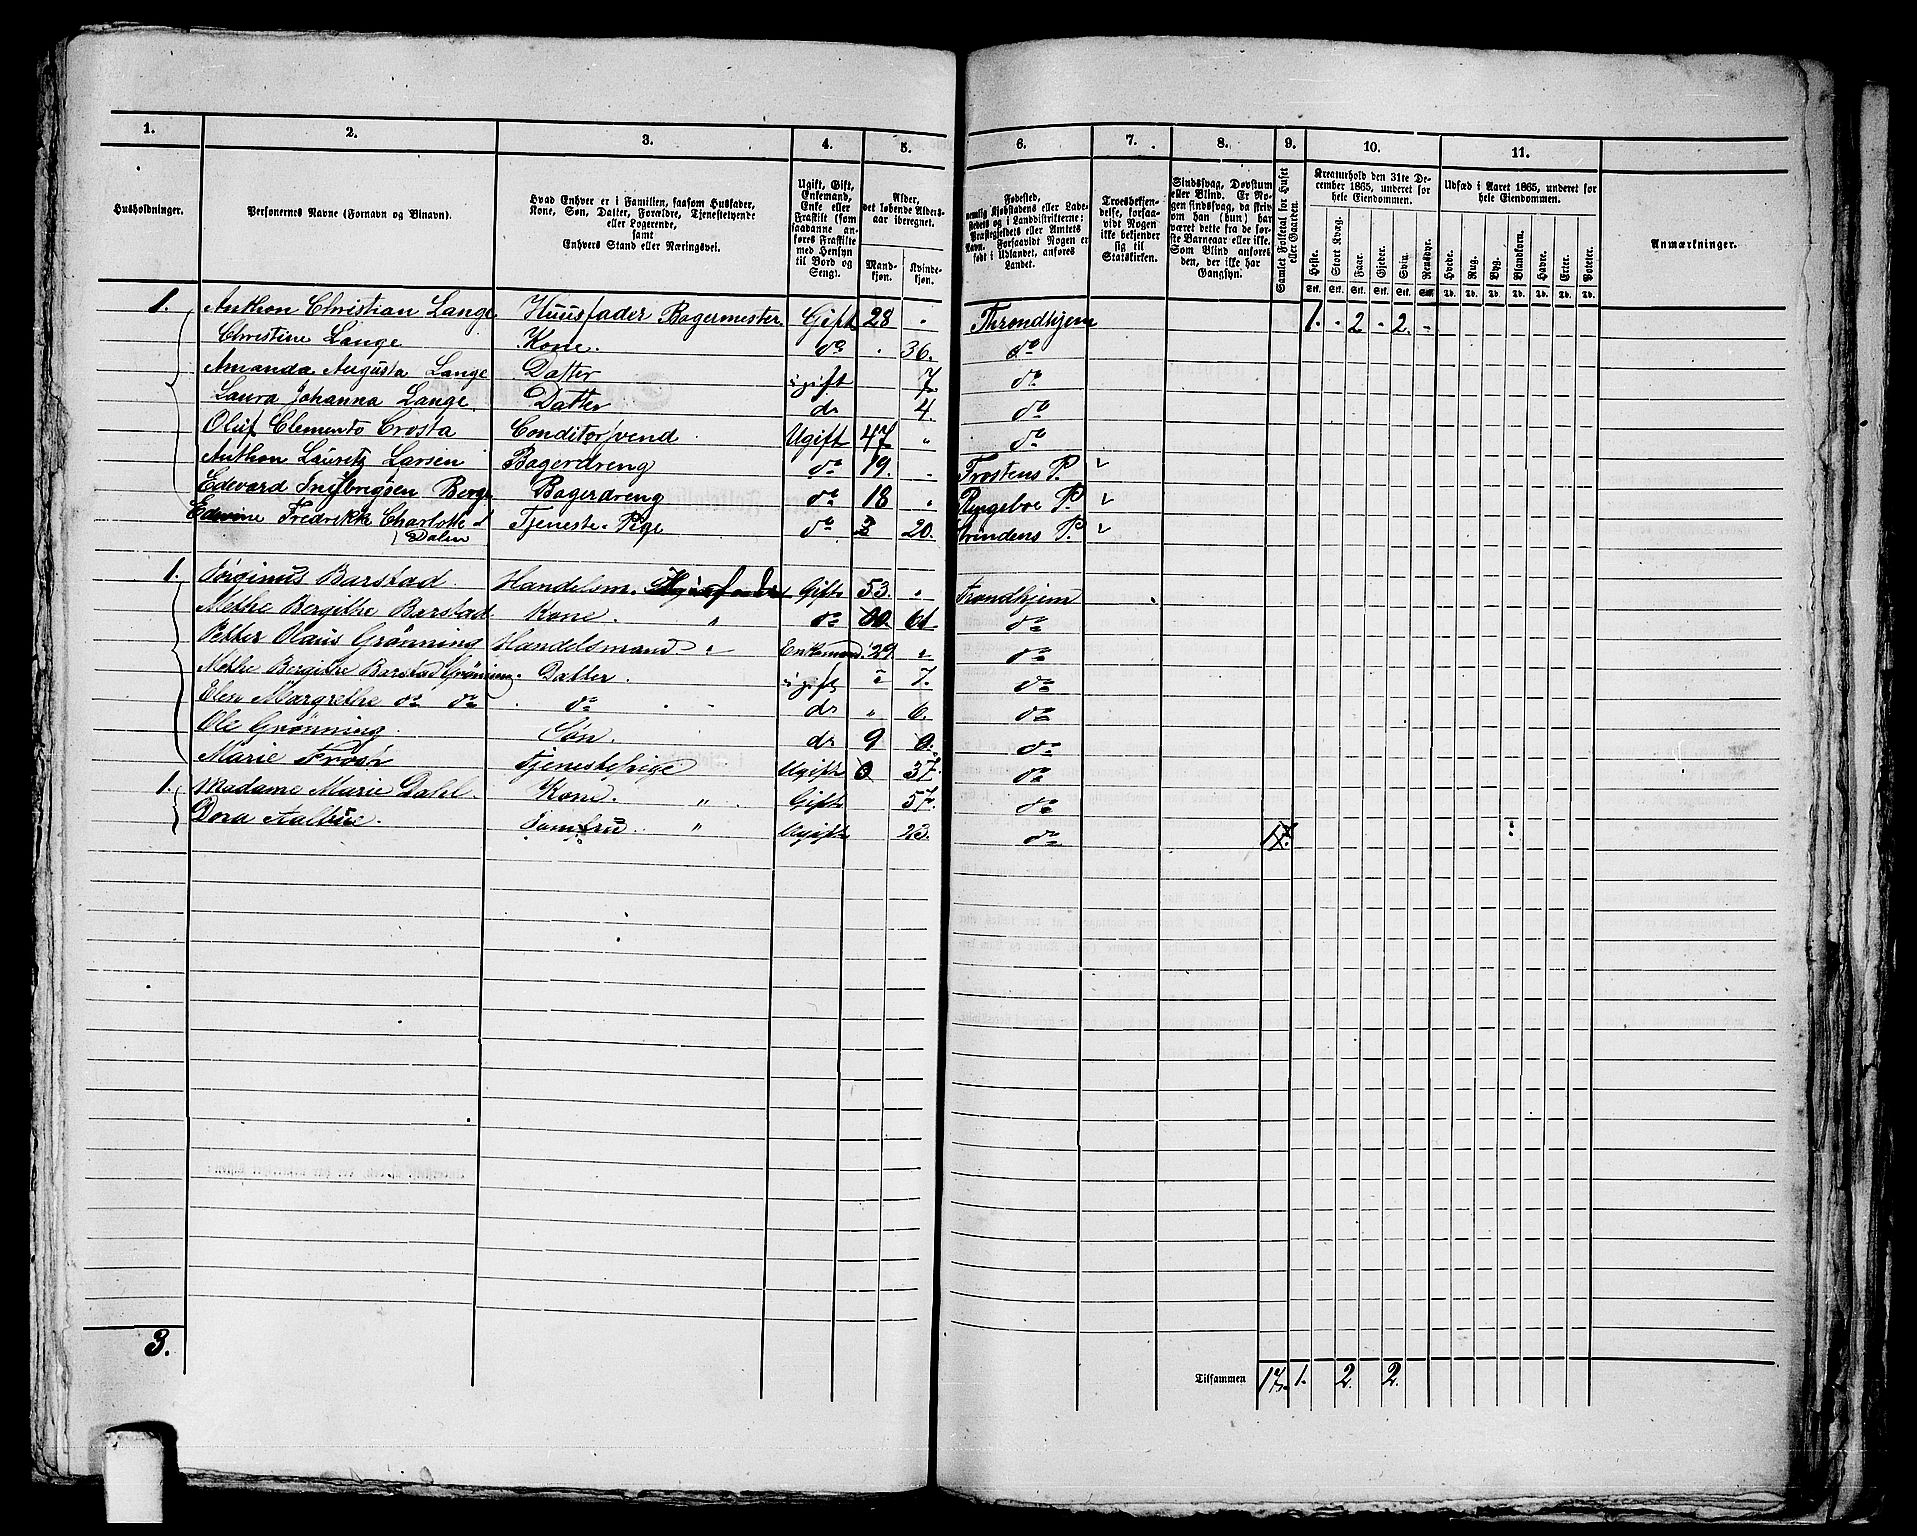 1. 2. 3. 4. 5. 6. 7. 8. 9. 10. 11.
Husholdninger.
Personernes Navne (Fornavn og Binavn).
Hvad Enhver er i Familien, saasom Husfader,
Kone, Søn, Datter, Forældre, Tjenestetyende
eller Logerende,
samt
Enhvers Stand eller Næringsvei.
Ugift, Gift,
Enkemand,
Enke eller
Fraskilt (som
saadanne an-
føres Fraskilte
med Hensyn
til Bord og
Seng).
Alder,
det løbende Alders-
aar iberegnet.
Mand-
kjøn.
Kvinde-
kjøn.
Fødested,
nemlig Kjøbstadens eller Lade-
stedets og i Landdistrikterne:
Præstegjeldets eller Amtets
Navn. Forsaavidt Nogen er
født i Udlandet, anføres
Landet.
Troesbekjen-
delse, forsaa-
vidt Nogen
ikke bekjender
sig til
Statskirken.
Sindssvag, Døvstum
eller Blind. Er No-
gen sindssvag, da skriv
om han (hun) har
været dette fra de før-
ste Barneaar eller ikke.
Som Blind anføres
den, der ikke har
Gangsyn.
Samlet Folketal for Huset
eller Gaarden.
Kreaturhold den 31te De-
cember 1865, underet for
hele Eiendommen.
Heste. Stort Kvæg. Faar. Gjeder. Svin. Rensdyr.
Stk. Stk. Stk. Stk. Stk. Stk.
Udsæd i Aaret 1865, underet for
hele Eiendommen.
Hvede. Rug. Byg. Blandkorn. Havre. Erter. Poteter.
Td. Td. Td. Td. Td. Td. Td.
Anmærkninger.
1. Anthon Christian Lange Huusfader Bagermester Gift 28 " Throndhjem 1. - 2 - 2. -
Christine Lange Kone. do . 36. do
Amanda Augusta Lange Datter ugift 7 do
Laura Johanna Lange. Datter do 4. do
Oluf Clemento Crosta Conditorsvend Ugift 47 " do
Anthon Lauretz Larsen Bagerdreng do 19. . Frostens P.
Edevard Ingbrigsen Berge Bagerdreng do 18 " Ringeboe P.
Edevine Fredrikke Charlotte Dalen Tjeneste-Pige do 20. Strindens P.
1. Jørginus Barstad. Handelsm. Gift 53. " Trondhjem
Methe Bergithe Barstad Kone. " do 61 do
Petter Olaus Grønning Handelsmand " Enkemand 29 " do
Methe Bergithe Barstad Grønning. Datter. ugift 7. do
Elen Margrethe do do do do " 6. do
Ole Grønning. Søn. do 9 0. do
Marie Frosø Tjenestepige Ugift 0 37. do
1. Madame Marie Dahl. Kone. " Gift 57. do
Dora Aalbue. Jomfru. " Ugift 23. do 17.
3.
Tilsammen 17. 1. 2. 2.